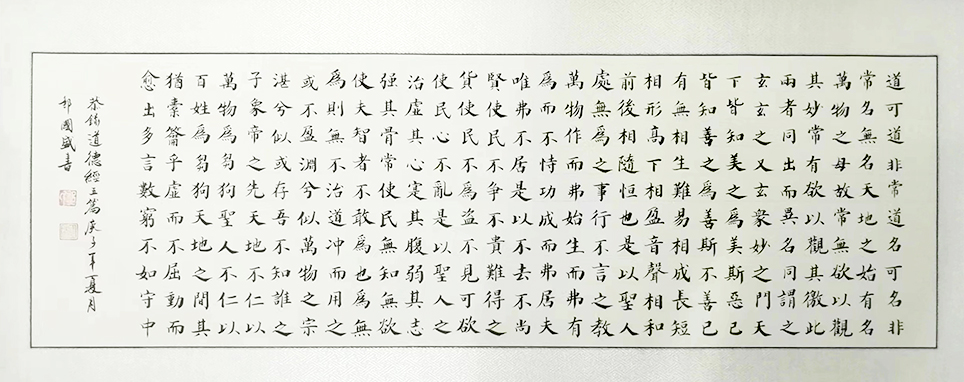 道可道非常道名可名非
常名無名天地之始有名
萬物之母故常無欲以觀
其妙常有欲以觀其徼此
兩者同出而異名同謂之
玄玄之又玄衆妙之門天
下皆知美之為美斯惡已
皆知善之為善斯不善已
有無相生難易相成長短
相形高下相盈音聲相和
前後相隨恒也是以聖人
處無為之事行不言之教
萬物作而弗始生而弗有
為而不恃功成而弗居夫
唯弗不居是以不去不尚
賢使民不爭不貴難得之
貨使民不為盜不見可欲
使民心不亂是以聖人之
治虛其心寔其腹弱其志
强其骨常使民無知無欲
使夫智者不敢為也為無
為則無不治道冲而用之
或不盈淵兮似萬物之宗
湛兮似或存吾不知誰之
子象帝之先天地不仁以
萬物為芻狗聖人不仁以
百姓為芻狗天地之間其
猶橐籥乎虛而不屈動而
愈出多言數窮不如守中
恭錄道德經五篇庚子年夏月
國盛書